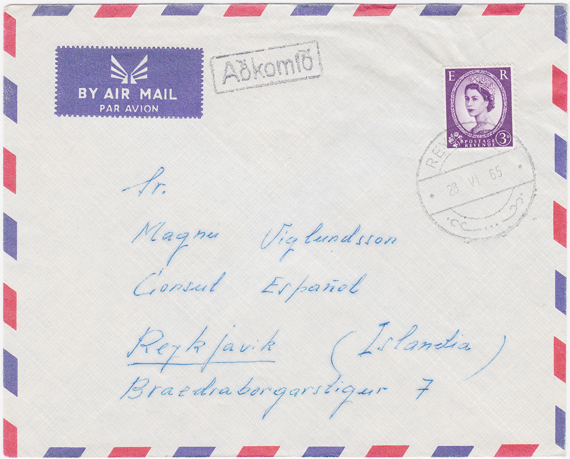 BY AIR MAIL
PAR AVION
Aðkomið
E R
POSTAGE
REVENUE
3D
RE
28 VI 65
Sr.
Magnu Viglundsson
Consul Español
Reykjavik (Islandia)
Braedraborgarstigur 7